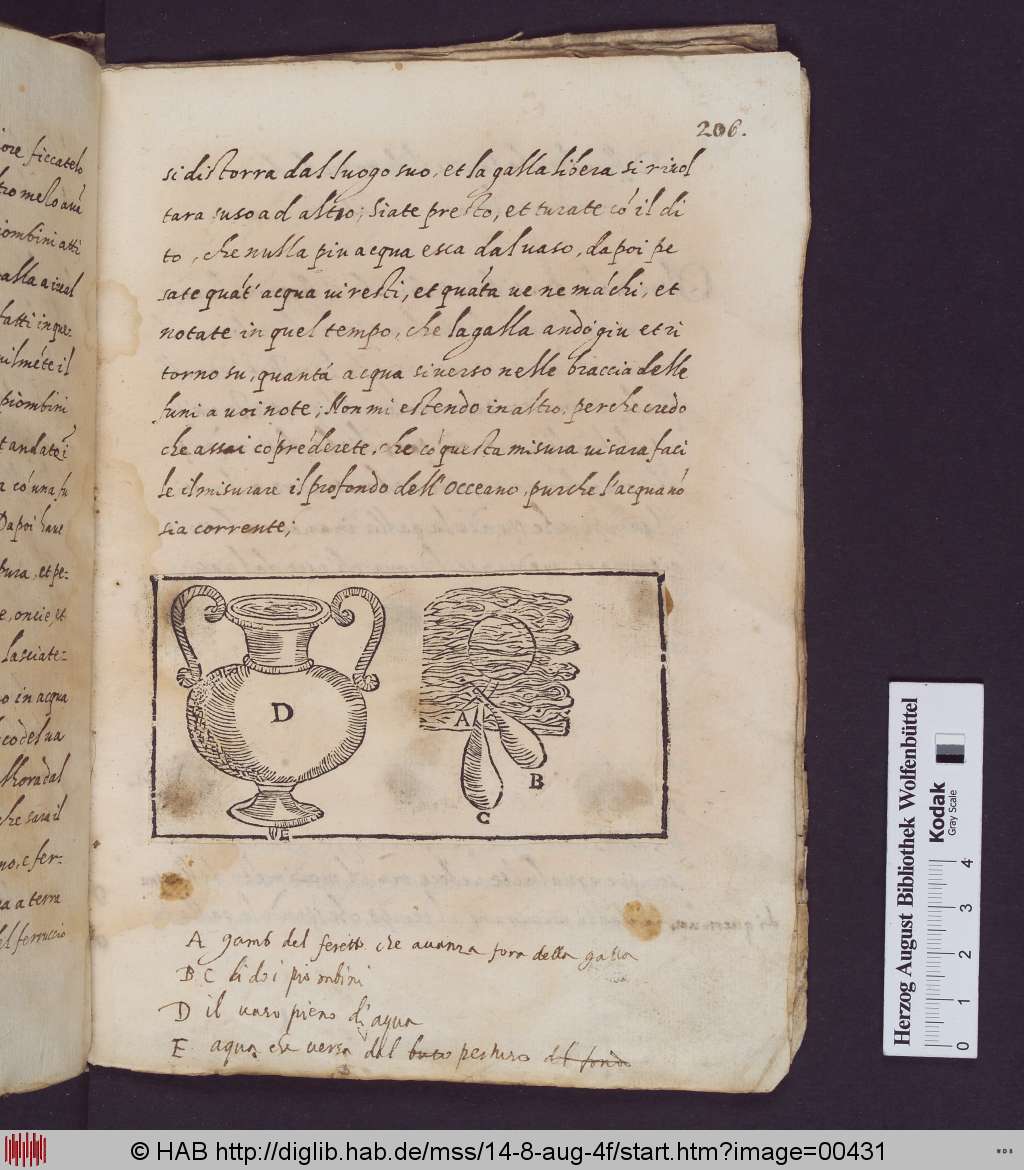 iore ficcatelo
tro melo aue
iombini atti
alla a iual
fatti in que-
uilméte il
piombini
t andate ĩ
a có una fu
Dapoi haue
pura, et pe-
e, oncie, et
lasciate-
o in acqua
co del ua
Allora dal
che sara il
no, e fer-
ua a terra
del ferruccio
206.
si distorra dal luogo suo, et la galla libera si riuol
tara suso ad alto; Siate presto, et turate có il di
to, che nulla piu acqua esca dal uaso, dapoi pe
sate quát' acqua ui resti, et quáta ue ne máchi, et
notate in quel tempo, che la galla andò giu et ri
torno su, quantá acqua si uerso nelle braccia delle
funi a uoi note; Non mi estendo in altro, perche credo
che assai cópréderete, che có questa misura ui sara faci
le il misurare il profondo dell' Occeano, purche l'acqua nó
sia corrente;
D
E
A
B
C
A gamb del feretto che auanza fora della galla
B C li doi piombini
D il uaso pieno d'aqua
E aqua che uersa dal buto pertuso del fondo
Herzog August Bibliothek Wolfenbüttel
Kodak
Gray Scale
0 1 2 3 4
© HAB http://diglib.hab.de/mss/14-8-aug-4f/start.htm?image=00431